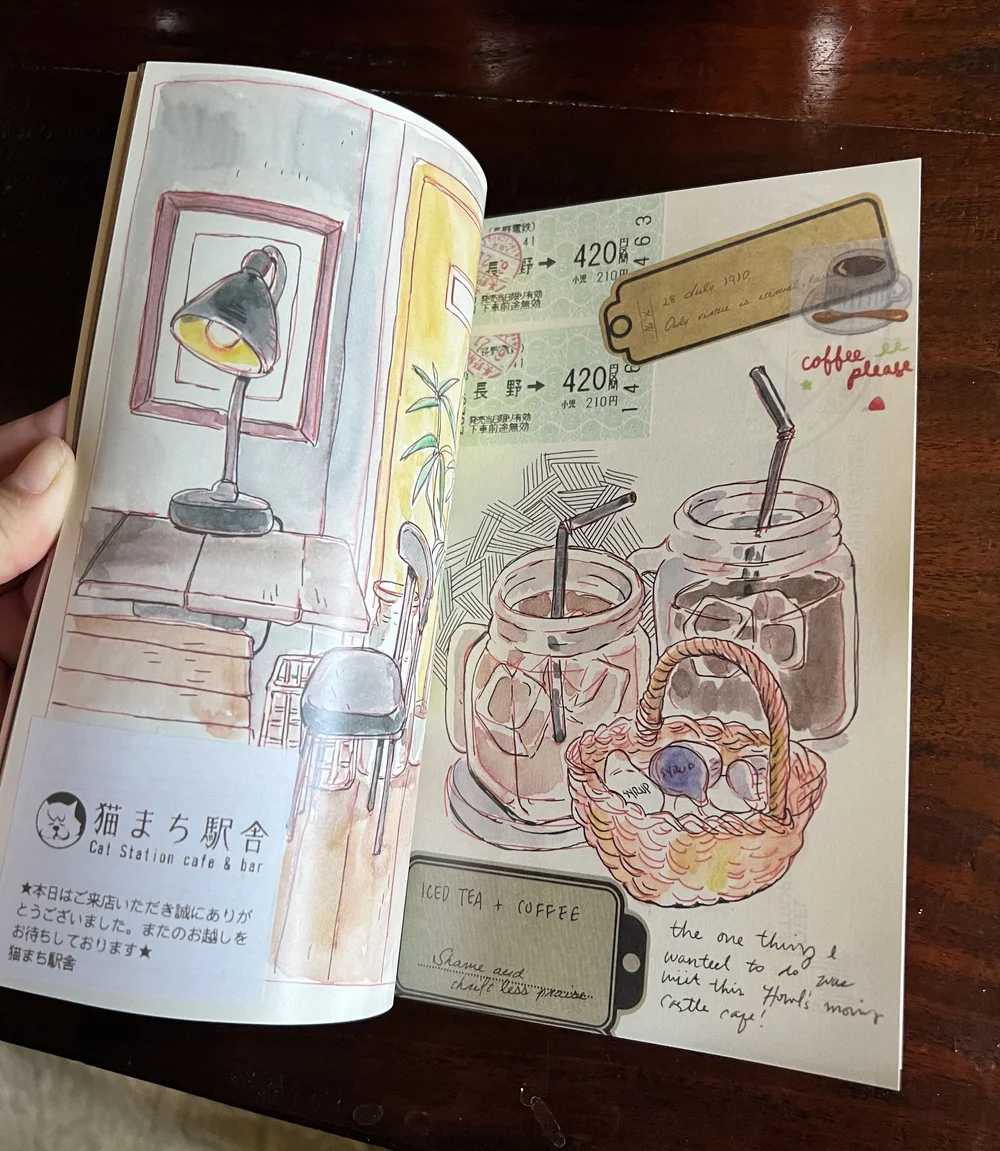 猫まち駅舎
Cat Station cafe & bar
★本日はご来店いただき誠にありが
とうございました。またのお越しを
お待ちしております★
猫まち駅舎
(長野電鉄)
41
長 野 → 420円区間
小児 210円
発売当日限り有効
下車前途無効
463
41
長 野 → 420円区間
小児 210円
発売当日限り有効
下車前途無効
146
28 July 1910
Only virtue is eternal
coffee
please
SYRUP
SYRUP
ICED TEA + COFFEE
Shame and
thrift less praise
the one thing I
wanted to do was
visit this Howl's moving
castle cafe!